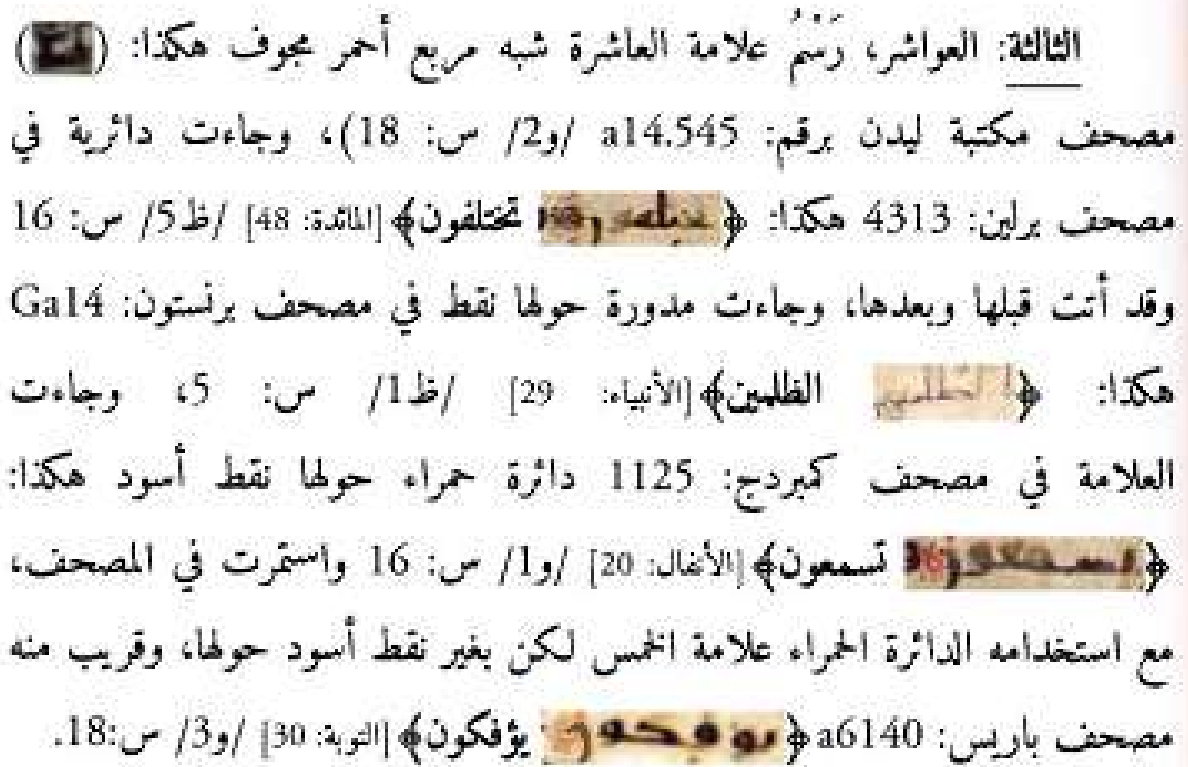 الثالثة: العواشر، رَسْمُ علامة العاشرة شبه مربع أحمر مجوف هكذا: ()
مصحف مكتبة ليدن برقم: a14.545 /و2/ س: 18)، وجاءت دائرية في
مصحف برلين: 4313 هكذا: ﴿ تختلفون﴾ [المائدة: 48] /ظ5/ س: 16
وقد أتت قبلها وبعدها، وجاءت مدورة حولها نقط في مصحف برنستون: Ga14
هكذا: ﴿ الظلمين﴾ [الأنبياء: 29] /ظ1/ س: 5، وجاءت
العلامة في مصحف كمبردج: 1125 دائرة حمراء حولها نقط أسود هكذا:
﴿ تسمعون﴾ [الأنفال: 20] /و1/ س: 16 واستمرت في المصحف،
مع استخدامه الدائرة الحمراء علامة الخمس لكن بغير نقط أسود حولها، وقريب منه
مصحف باريس: a6140 ﴿ يؤفكون﴾ [التوبة: 30] /و3/ س:18.